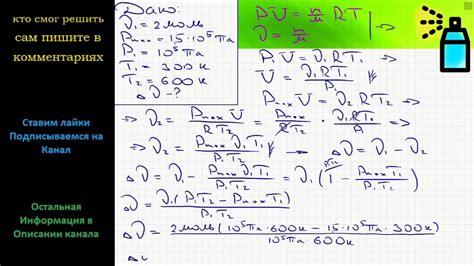 кто смог решить
сам пишите в
комментариях
Ставим лайки
Подписываемся на
Канал
Остальная
Информация в
Описании канала
Дано:
ν₁ = 2 моль
Pmax = 1,5·10⁵ Па
P₁ = 10⁵ Па
T₁ = 300 К
T₂ = 600 К
Δν - ?
PV = m/μ RT
ν = m/μ
P₁V = ν₁RT₁ =>
V = ν₁RT₁/P₁
PmaxV = ν₂RT₂ =>
=> ν₂ = PmaxV/RT₂ = Pmax/RT₂ · ν₁RT₁/P₁ =>
=> ν₂ = Pmaxν₁T₁/P₁T₂ => Δν = ν₁ - ν₂
Δν = ν₁ - Pmaxν₁T₁/P₁T₂ = ν₁(1 - PmaxT₁/P₁T₂)
Δν = ν₁(P₁T₂ - PmaxT₁)/P₁T₂
Δν = 2моль(10⁵Па·600К - 1,5·10⁵Па·300К)/10⁵Па·600К